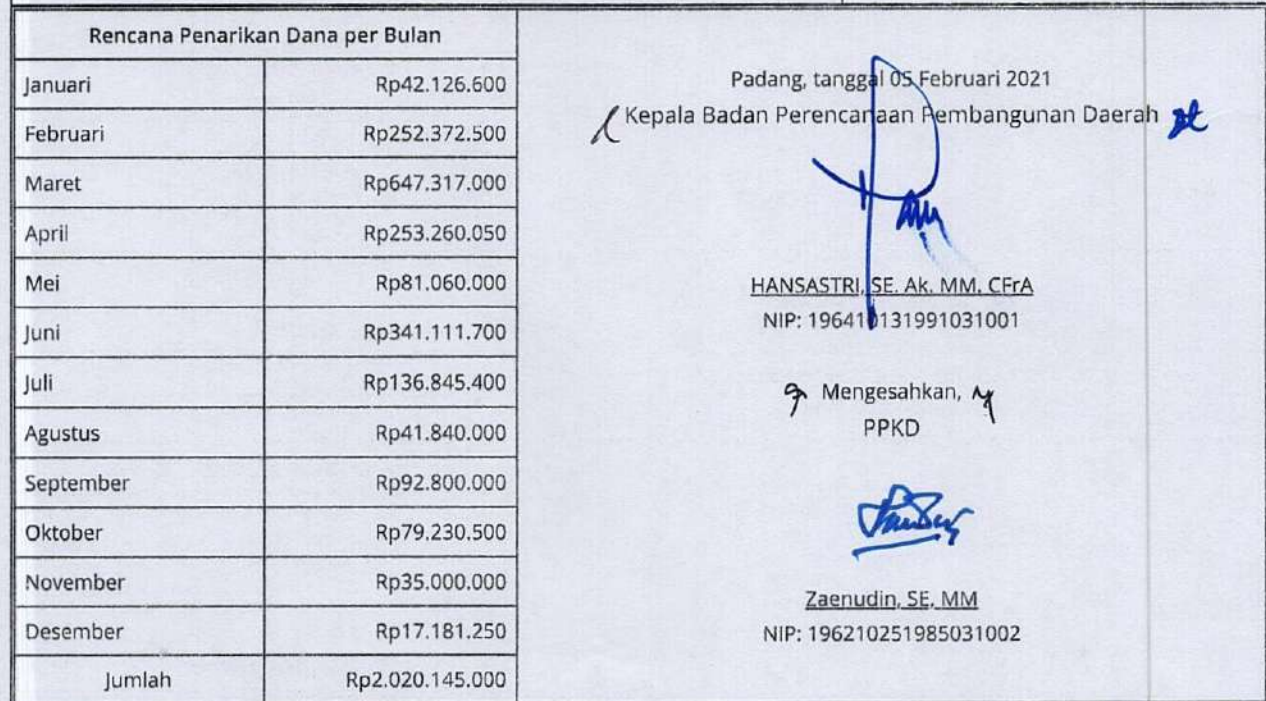 Rencana Penarikan Dana per Bulan
Januari Rp42.126.600
Februari Rp252.372.500
Maret Rp647.317.000
April Rp253.260.050
Mei Rp81.060.000
Juni Rp341.111.700
Juli Rp136.845.400
Agustus Rp41.840.000
September Rp92.800.000
Oktober Rp79.230.500
November Rp35.000.000
Desember Rp17.181.250
Jumlah Rp2.020.145.000
Padang, tanggal 05 Februari 2021
Kepala Badan Perencanaan Pembangunan Daerah
HANSASTRI, SE. Ak. MM. CFrA
NIP: 196410131991031001
Mengesahkan,
PPKD
Zaenudin, SE, MM
NIP: 196210251985031002